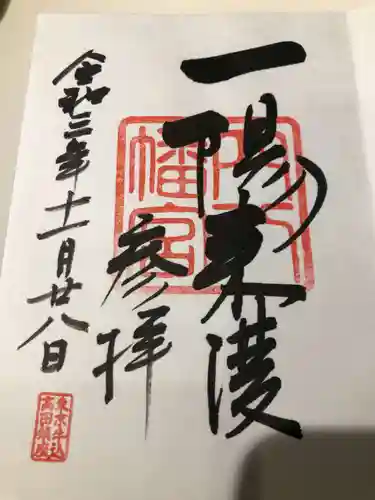 一陽来復
参拝
令和三年十一月廿八日
八幡宮
東京牛込
高田鎮座